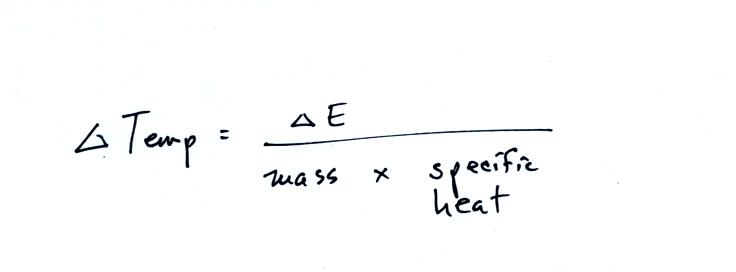 Δ Temp = Δ E
mass × specific
heat